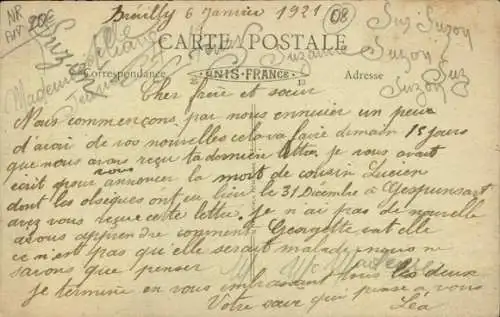 NR
20€
6 Janvier 1921
08
Suzon
Mademoiselle
Suzanne
Suzon
Suzon
Suz
CARTE POSTALE
Correspondance
UNIS-FRANCE
Adresse
Cher frère et sœur
Nous commençons par nous ennuier un peux
d'avoir de vos nouvelles cela va faire demain 15 jours
que nous avons reçu ta dernière lettre je vous avait
écrit pour vous annoncer la mort de cousin Lucien
dont les obsèques ont eu lieu le 31 Décembre à Gespunsart
avez vous reçue cette lettre. Je n'ai pas de nouvelle
à vous apprendre comment Georgette va t elle
ce n'est pas qu'elle serait malade nous ne
savons que penser
Je termine en vous embrassant tous les deux
Votre sœur qui pense à vous
Léa